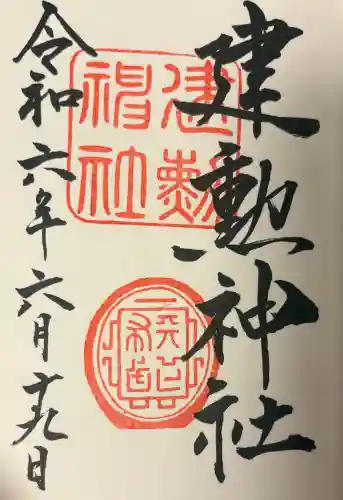 建勲神社
令和六年六月十九日
建勲
神社